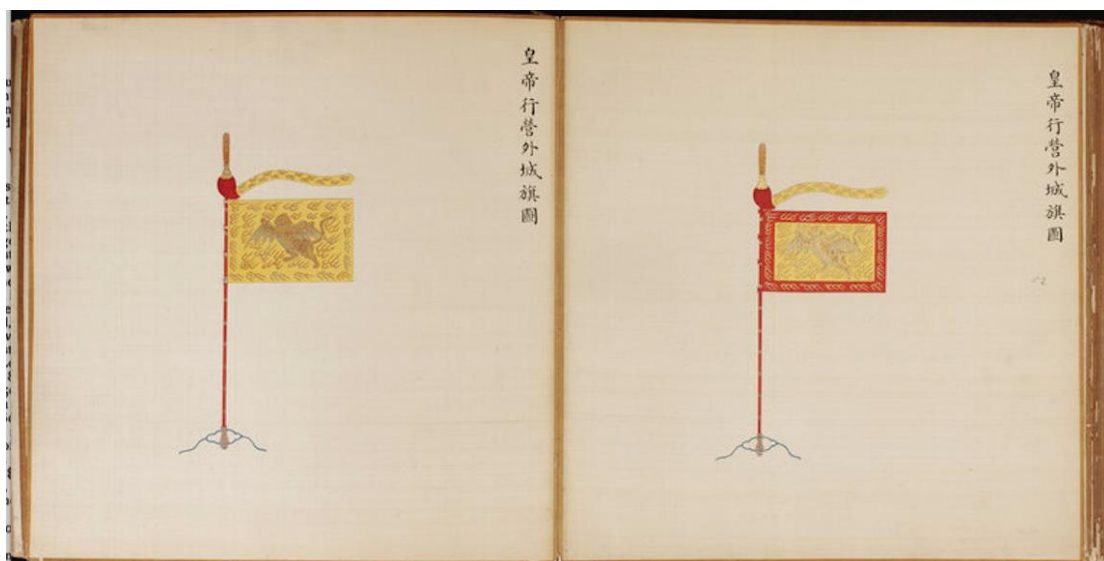 皇帝行營外城旗圖
皇帝行營外城旗圖